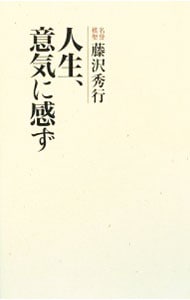 人生、
意気に感ず
名誉棋聖 藤沢秀行